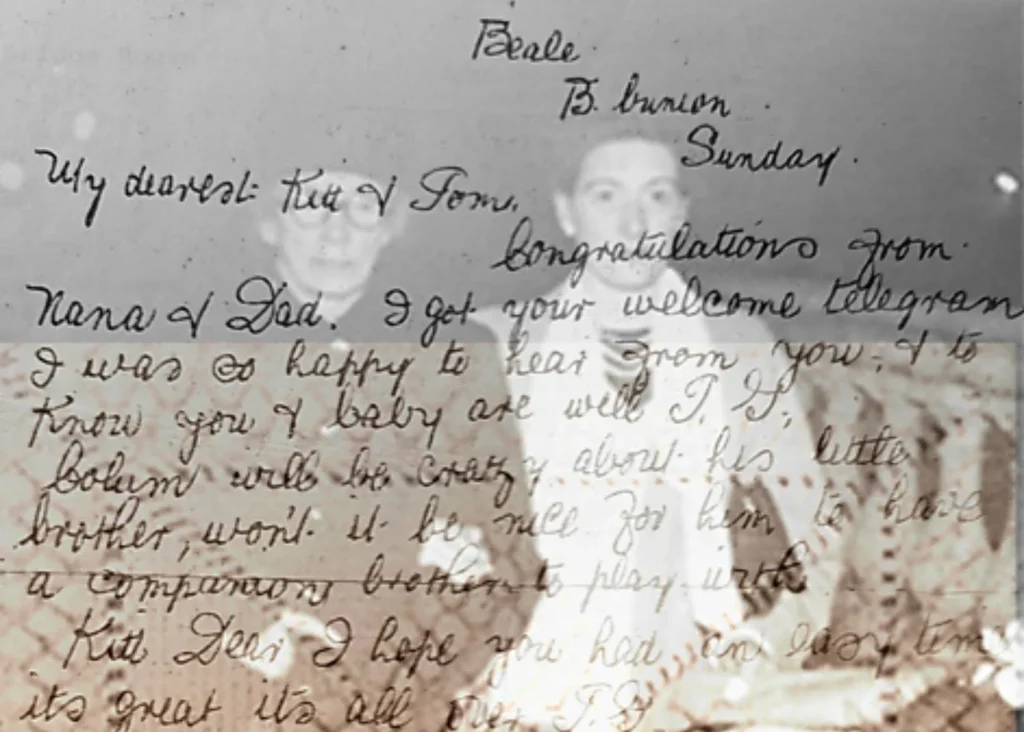 Beale
B. bunion.
Sunday.
My dearest Kitt & Tom.
Congratulations from
Nana & Dad. I got your welcome telegram
I was so happy to hear from you, & to
Know you & baby are well T. G.
Colum will be crazy about his little
brother, won't it be nice for him to have
a companion brother to play with
Kitt Dear I hope you had an easy time
its great its all over T. G